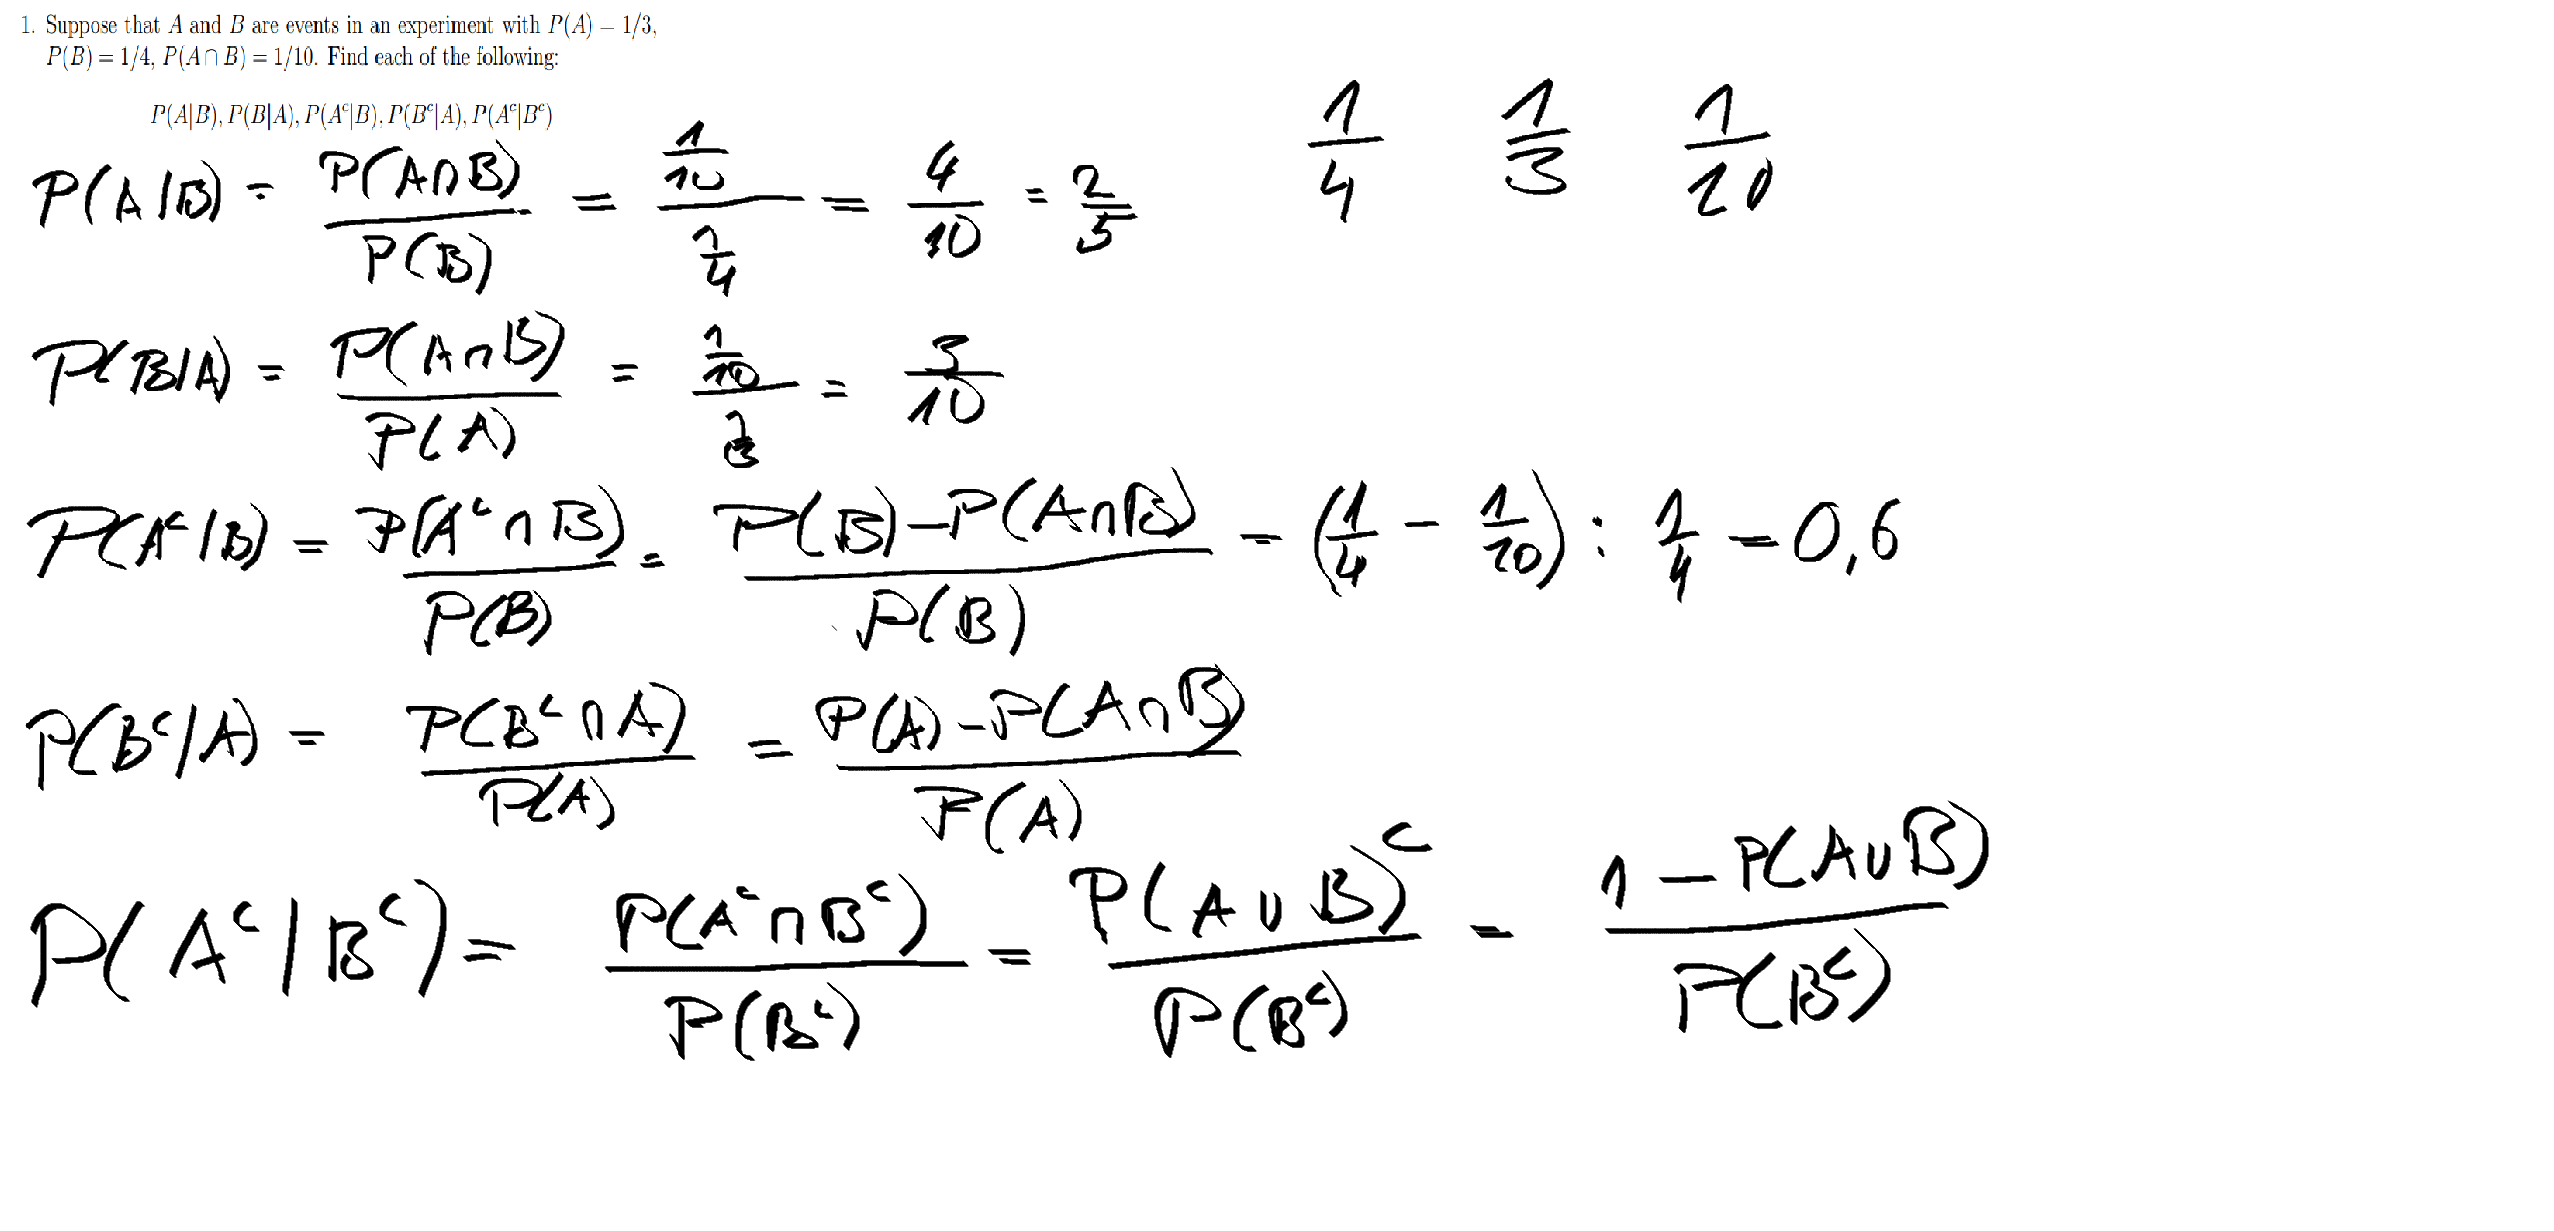 1. Suppose that A and B are events in an experiment with P(A) = 1/3,
P(B) = 1/4, P(A ∩ B) = 1/10. Find each of the following:
P(A|B), P(B|A), P(Aᶜ|B), P(Bᶜ|A), P(Aᶜ|Bᶜ)
1/4 1/3 1/10
P(A|B) = P(A∩B)/P(B) = (1/10)/(1/4) = 4/10 = 2/5
P(B|A) = P(A∩B)/P(A) = (1/10)/(1/3) = 3/10
P(Aᶜ|B) = P(Aᶜ∩B)/P(B) = (P(B)-P(A∩B))/P(B) = (1/4 - 1/10) : 1/4 = 0,6
P(Bᶜ|A) = P(Bᶜ∩A)/P(A) = (P(A)-P(A∩B))/P(A)
P(Aᶜ|Bᶜ) = P(Aᶜ∩Bᶜ)/P(Bᶜ) = P(A∪B)ᶜ/P(Bᶜ) = (1-P(A∪B))/P(Bᶜ)